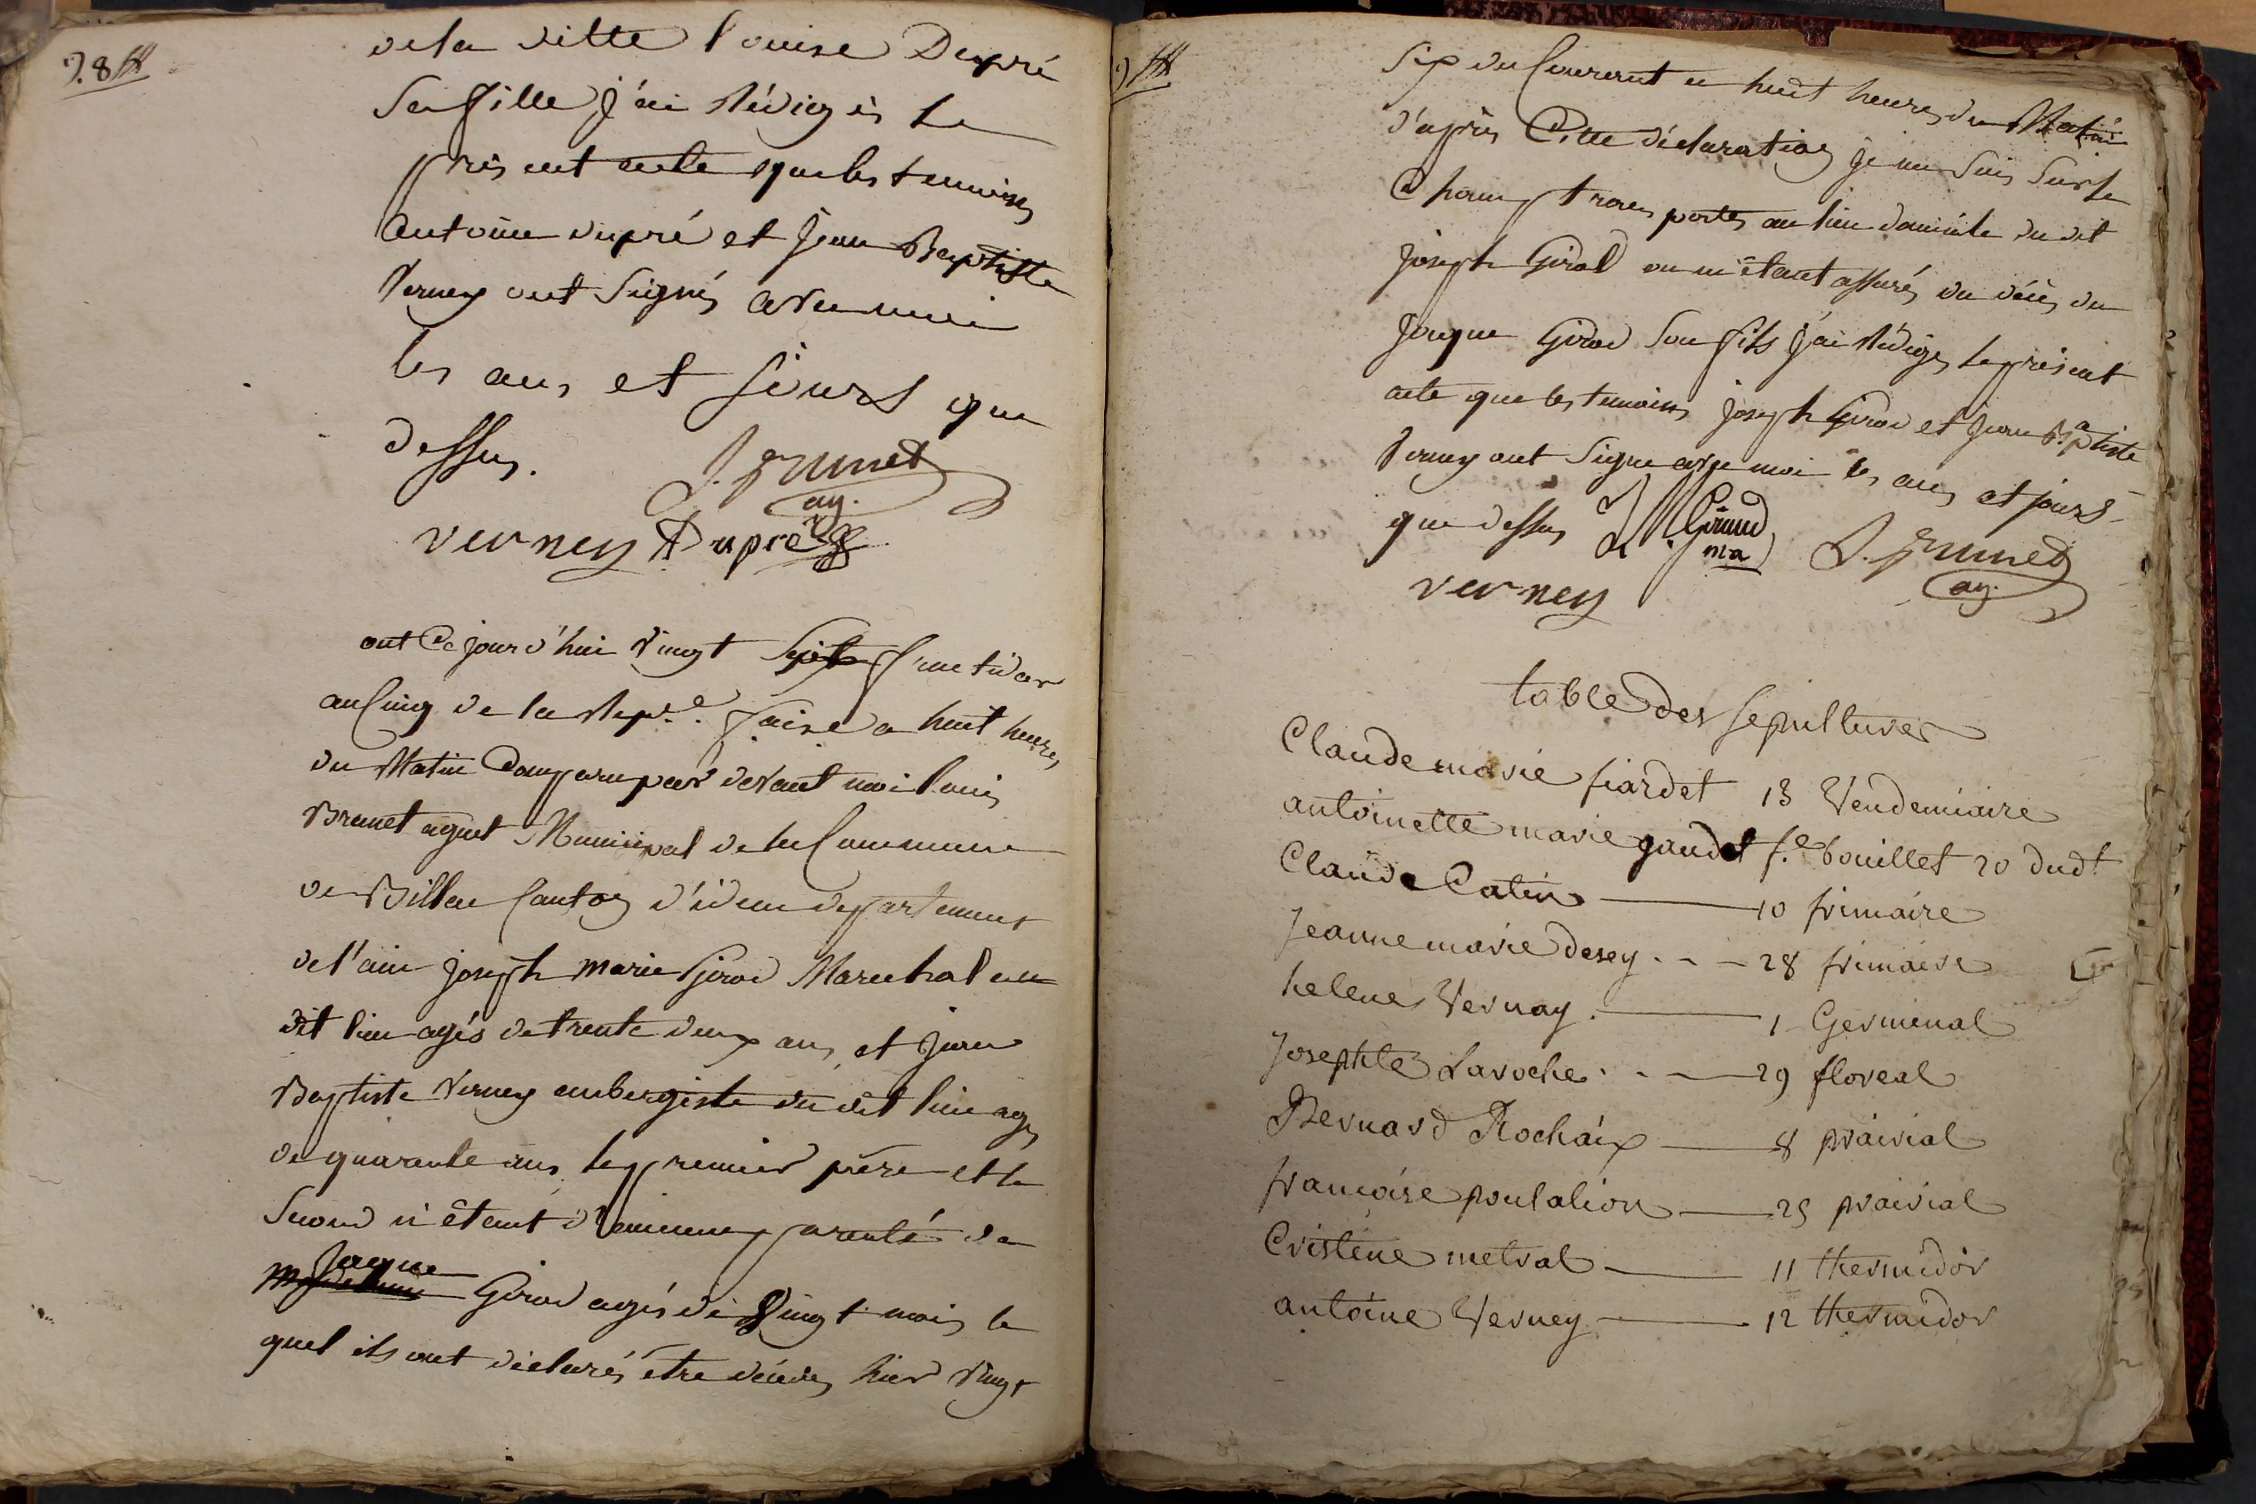 de la ditte Louise Dupré
Sa fille j'ai Rédigés le
présent acte que les temoins
Antoine dupré et Jean Baptiste
Verney ont Signés avec moi
les ans et jours que
dessus.
J. Brunet
ag.
verney Dupré
ont Ce jourd'hui Vingt Sept fructidor
an Cinq de la Rep.e faise a huit heures
du Matin Comparu par devant moi Louis
Brunet agent Municipal de la Commune
de Billia Canton d'idem departement
de l'ain joseph marie Girod Marechal au
dit lieu agés de trente deux ans et jean
Baptiste Verney aubergiste du dit lieu agés
de quarante ans le premier père et le
Second n'étant d'aucune parenté de
Jaque
Girod agés de Vingt mois le
quel ils ont déclarés être décédés hier Vingt
Six du Courrant a huit heures du Matin
d'après Cette déclaration je me Suis Sur le
Champ transportés au lieu domicile du dit
joseph Girod ou m'étant assurés du décès du
Jaque Girod Son fils j'ai Rédigés le présent
acte que les temoins joseph Girod et jean Baptiste
Verney ont Signe avec moi les ans et jours
que dessus J M Giraud
ma
J. Brunet
ag.
verney
table des sepultures
Claude marie fiardet 13 Vendemiaire
antoinette marie gaudet f.e bouillet 20 dudt
Claude Catin 10 frimaire
Jeanne marie desey 28 frimaire
helene Vernay 1 Germinal
Josephte Laroche 29 floreal
Bernard Rochaix 8 prairial
francoise poulalion 25 prairial
Cristine metral 11 thermidor
antoine Verney 12 thermidor